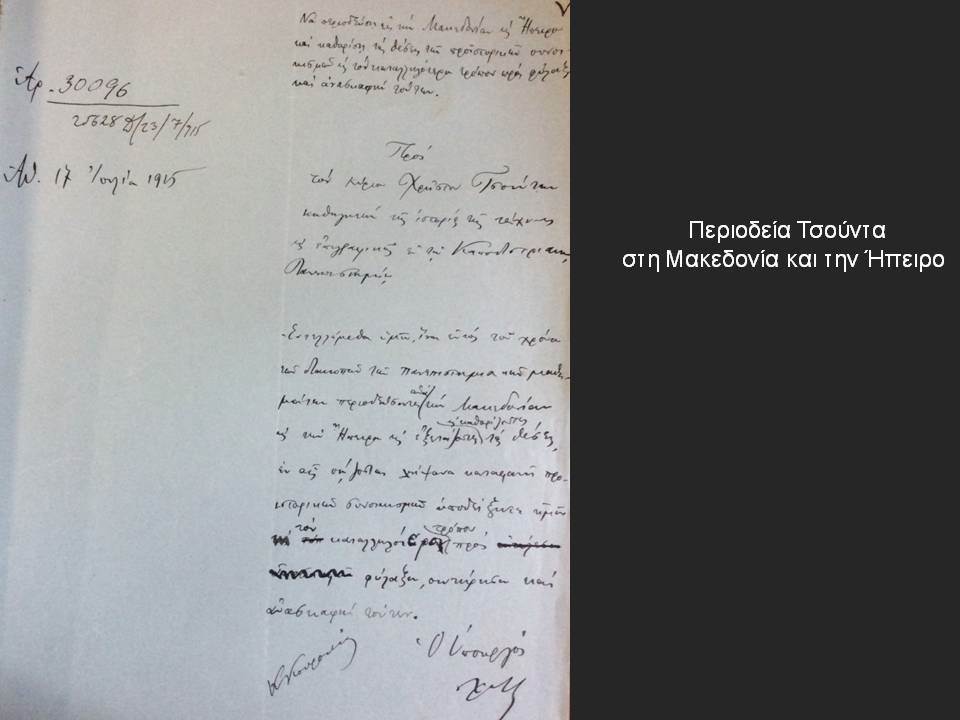 Νὰ περιοδεύσῃ εἰς τὴν Μακεδονίαν καὶ Ἤπειρον
καὶ καθορίσῃ τὰς θέσεις τῶν προϊστορικῶν συνοι
κισμῶν καὶ τὸν καταλληλότερον τρόπον πρὸς φύλαξιν
καὶ ἀνασκαφὴν τούτων.
Ἀρ. 30096
25628 /23/7/915
Ἀθ. 17 Ἰουλία 1915
Πρὸς
τὸν κύριον Χρῆστον Τσούνταν
καθηγητὴν τῆς ἱστορίας τῆς τέχνης
καὶ ἐπιγραφικῆς ἐν τῷ Καποδιστριακῷ
Πανεπιστημίῳ
Ἐντελλόμεθα ὑμῖν, ἵνα ἐντὸς τοῦ χρόνου
τῶν διακοπῶν τῶν Πανεπιστημιακῶν μαθη
μάτων περιοδεύσαντες τὴν Μακεδονίαν
καὶ τὴν Ἤπειρον καὶ καθορίζοντες τὰς θέσεις,
ἐν αἷς σῴζονται λείψανα καταφανῆ προ
ϊστορικῶν συνοικισμῶν ὑποδείξητε ἡμῖν
τὸν καταλληλότερον τρόπον πρὸς
φύλαξιν, συντήρησιν καὶ
ἀνασκαφὴν τούτων.
Ὁ Ὑπουργὸς
Περιοδεία Τσούντα
στη Μακεδονία και την Ήπειρο